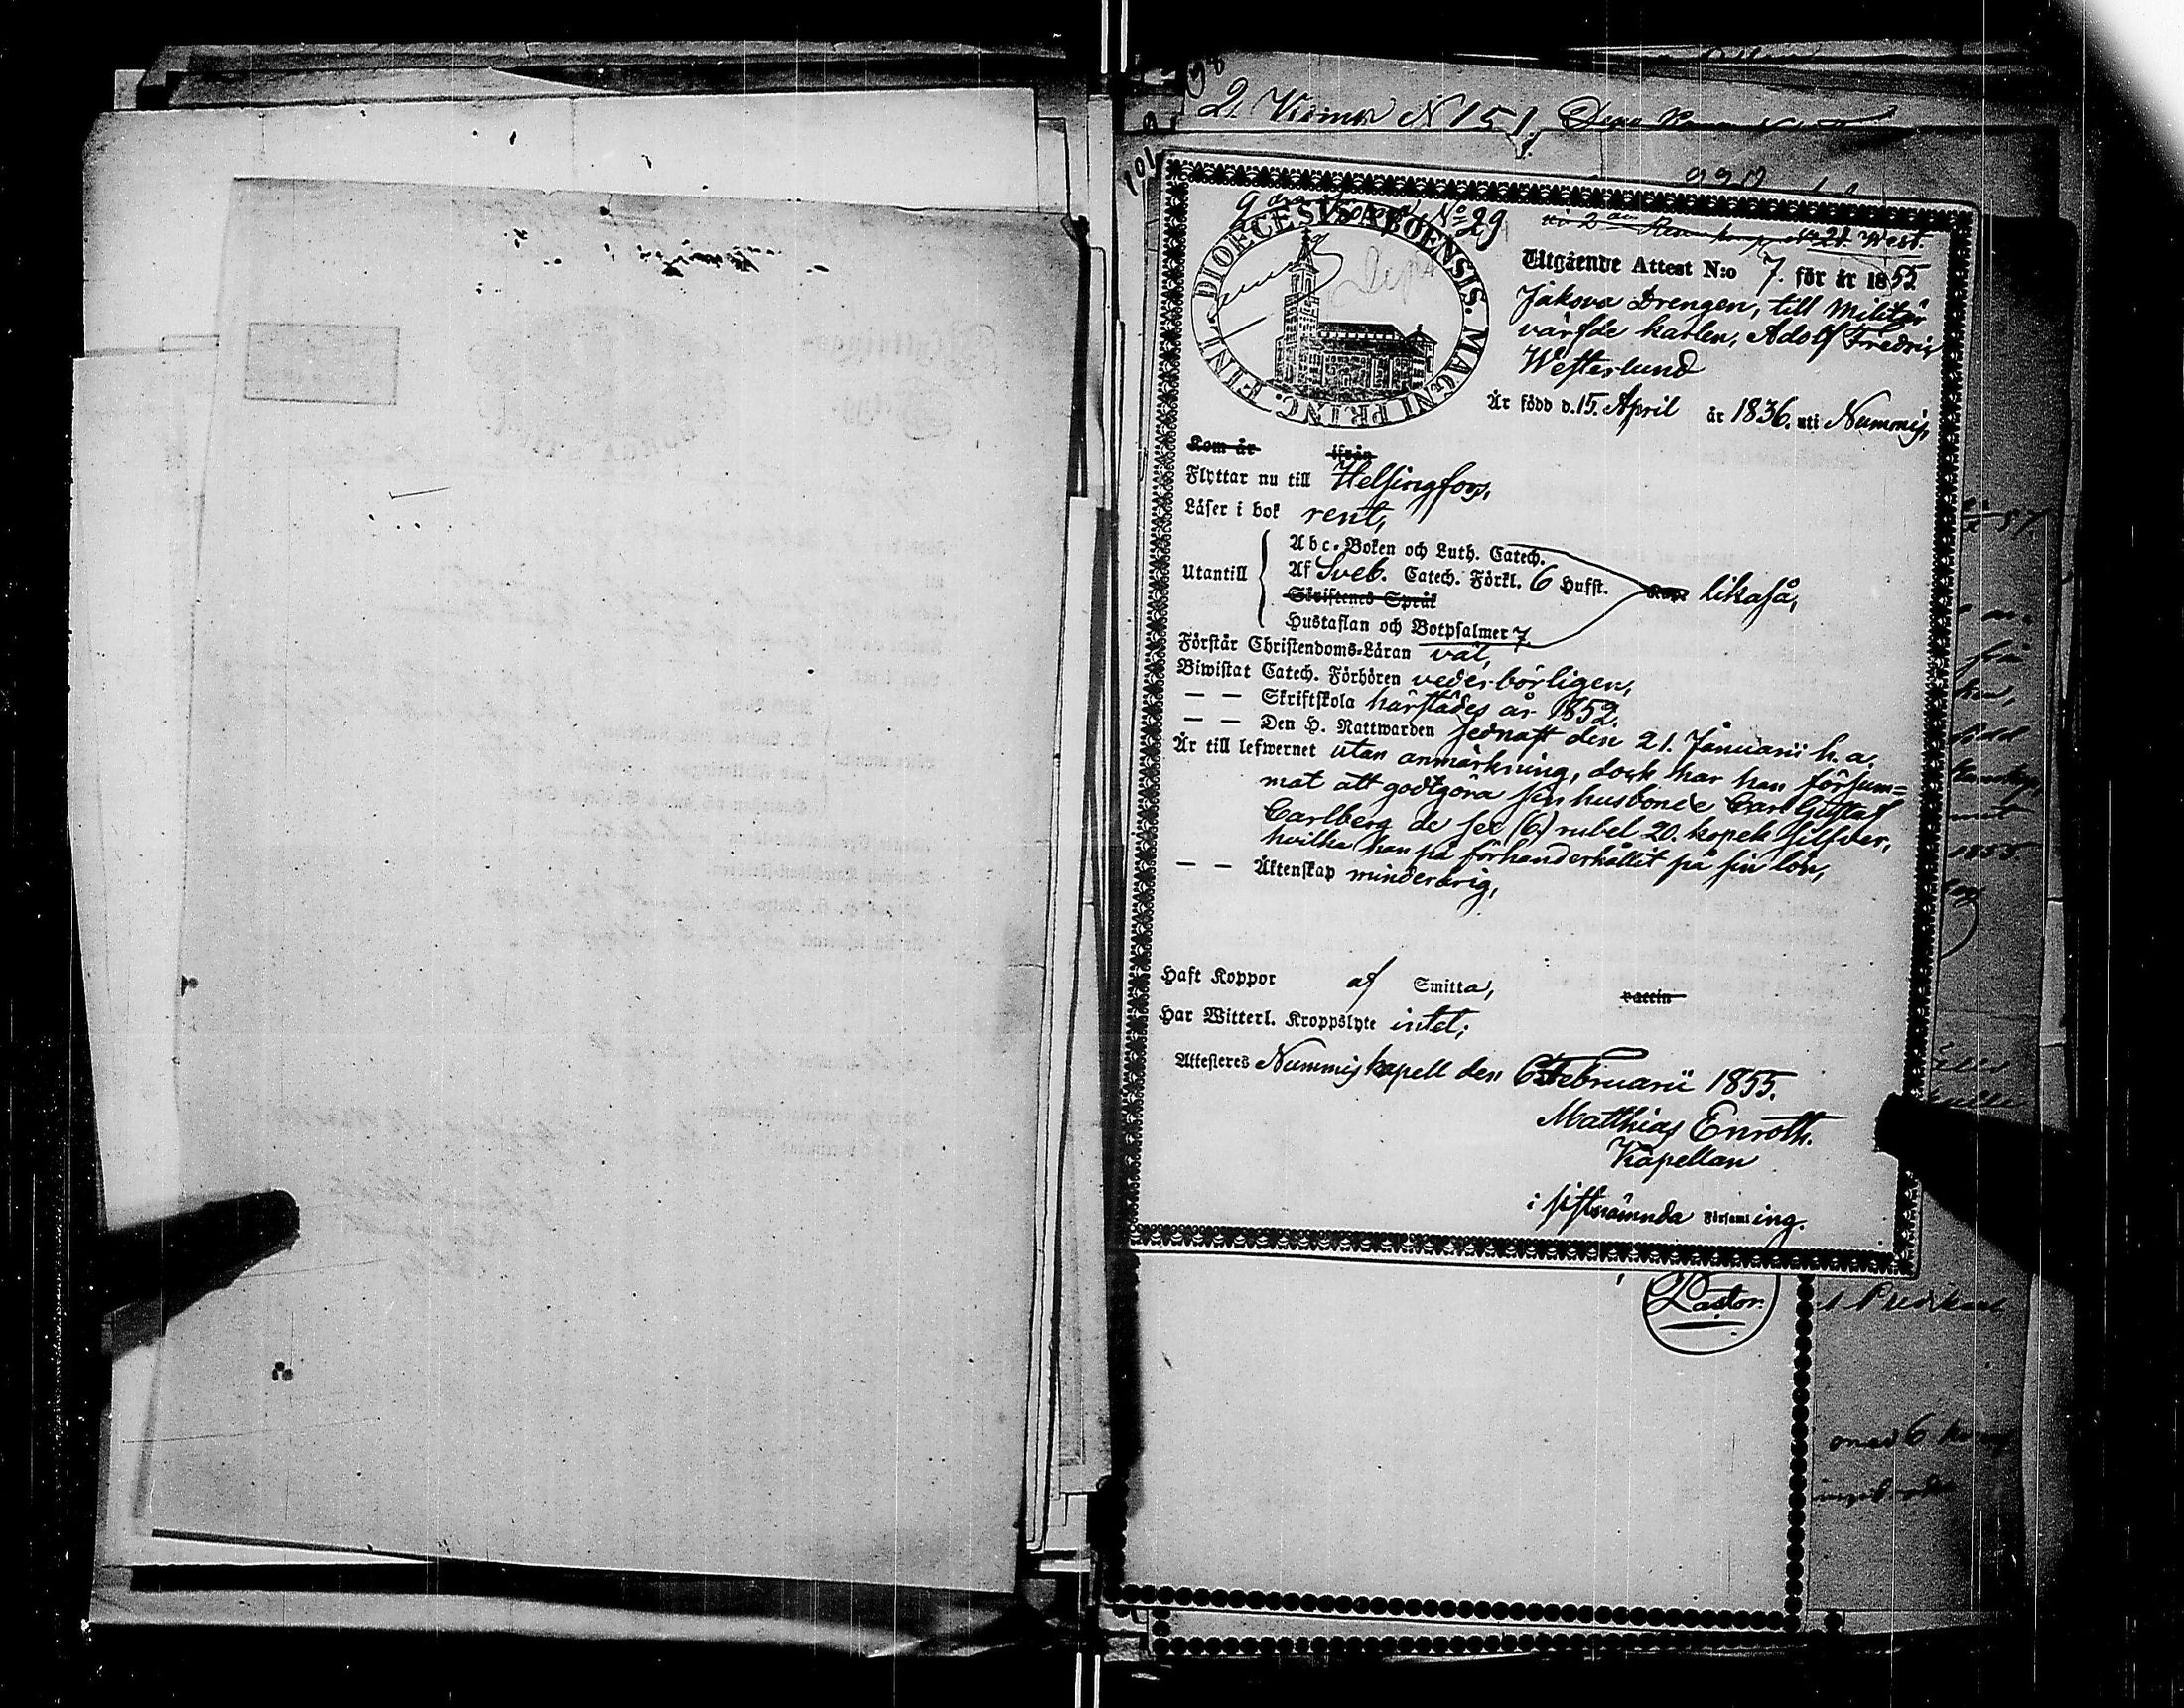 2. Komp N 151.
101
9 No 29
No 21 West.
DIOECESIS ABOENSIS. MAGNI PRINC. FINL.
Utgående Attest N:o 7. för år 1855
Jakova Drengen, till Militär
värfde karlen, Adolf Fredric
Westerlund
Är född d. 15. April år 1836. uti Nummis,
Kom år ifrån
Flyttar nu till Helsingfors,
Läser i bok rent,
Utantill
Abc-Boken och Luth. Catech.
Af Sveb. Catech. Förkl. 6 Hufst.
likaså,
Skriftenes Språk
Hustaflan och Botpsalmer 7.
Förstår Christendoms-Läran väl,
Biwistat Catech. Förhören vederbörligen,
— — Skriftskola härstädes år 1852.
— — Den H. Nattwarden sednast den 21. Januarii h. a.
Är till lefwernet utan anmärkning, dock har han försum=
mat att godtgöra sin husbonde Carl Gustaf
Carlberg de sex (6.) rubel 20. kopek silfver,
hvilka han på förhand erhållit på sin lön,
— — Äktenskap minderårig,
Haft Koppor af Smitta, vaccin
Har Witterl. Kroppslyte intet;
Attesteras Nummis kapell den 6 Februarii 1855.
Matthias Enroth.
Kapellan
i sistnämnda Församling.
Pastor.